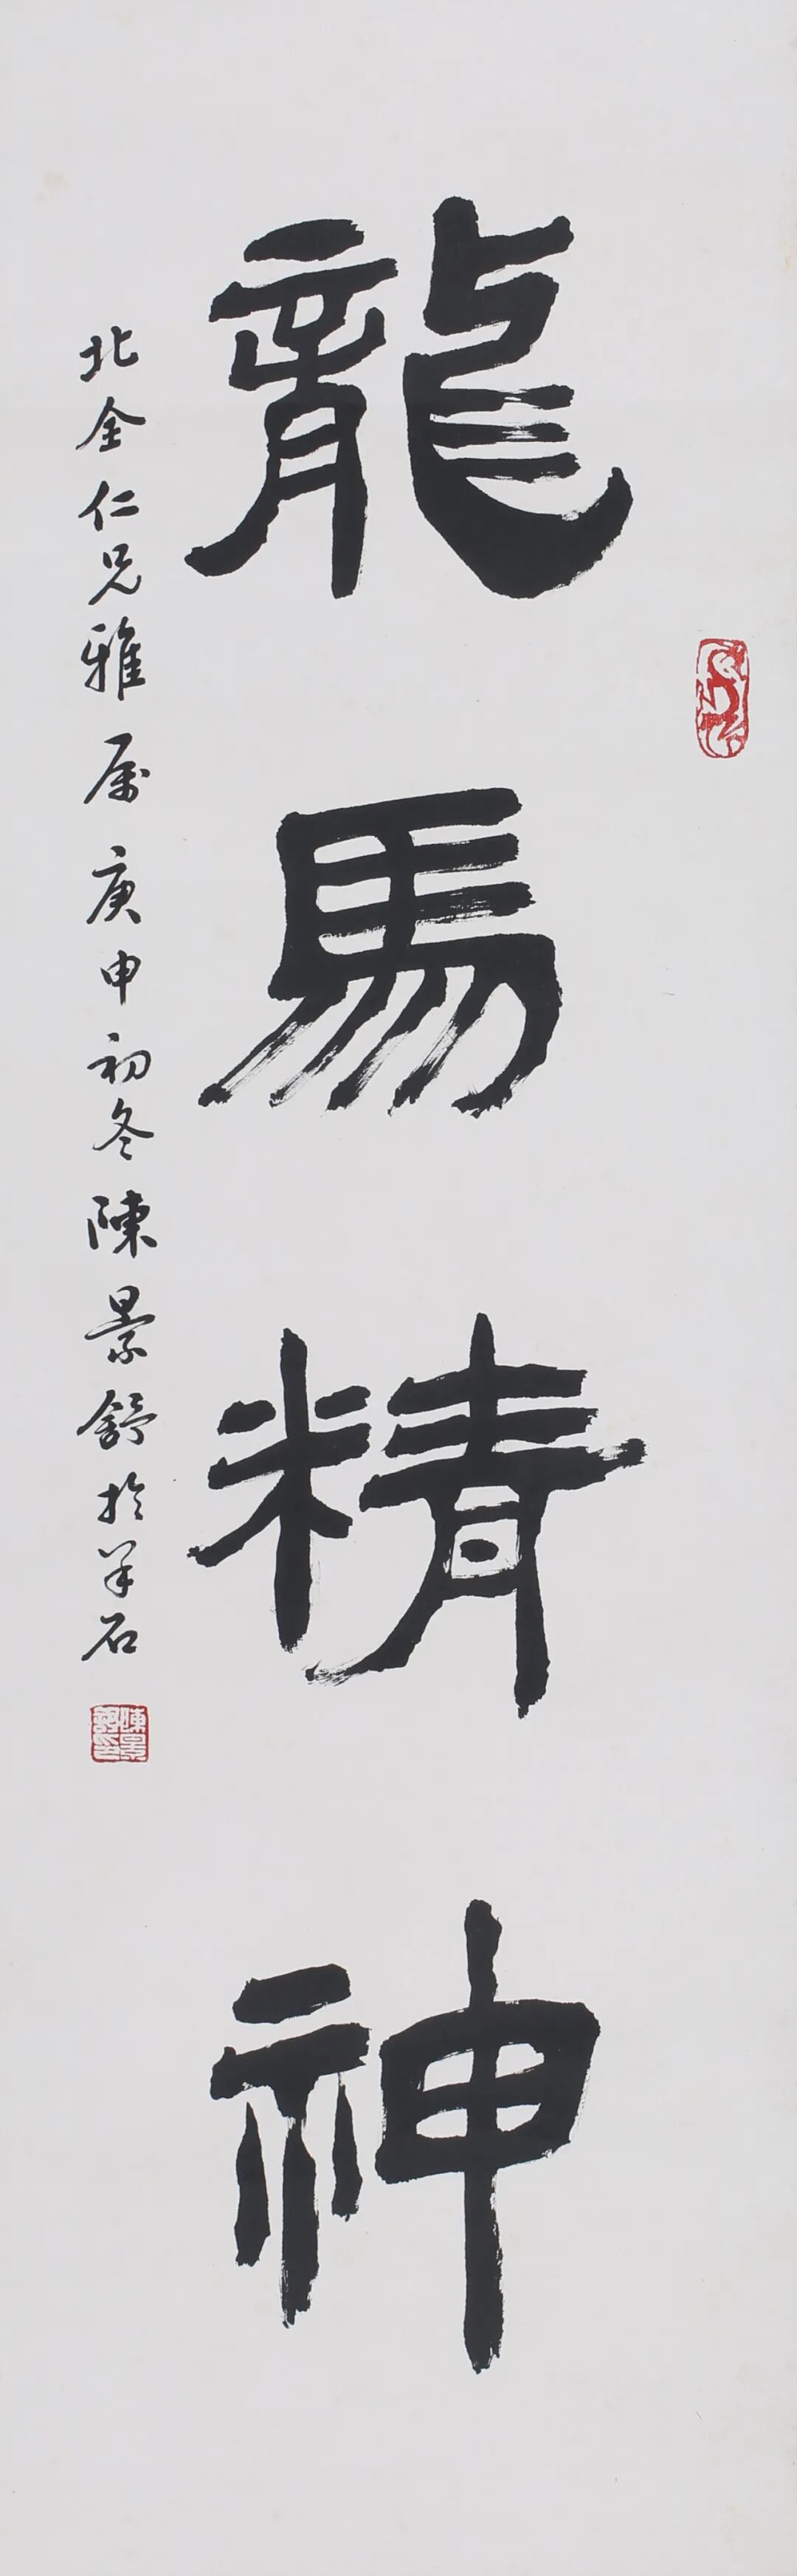 龍馬精神
北全仁兄雅属庚申初冬陳景舒於羊石
陳景舒印